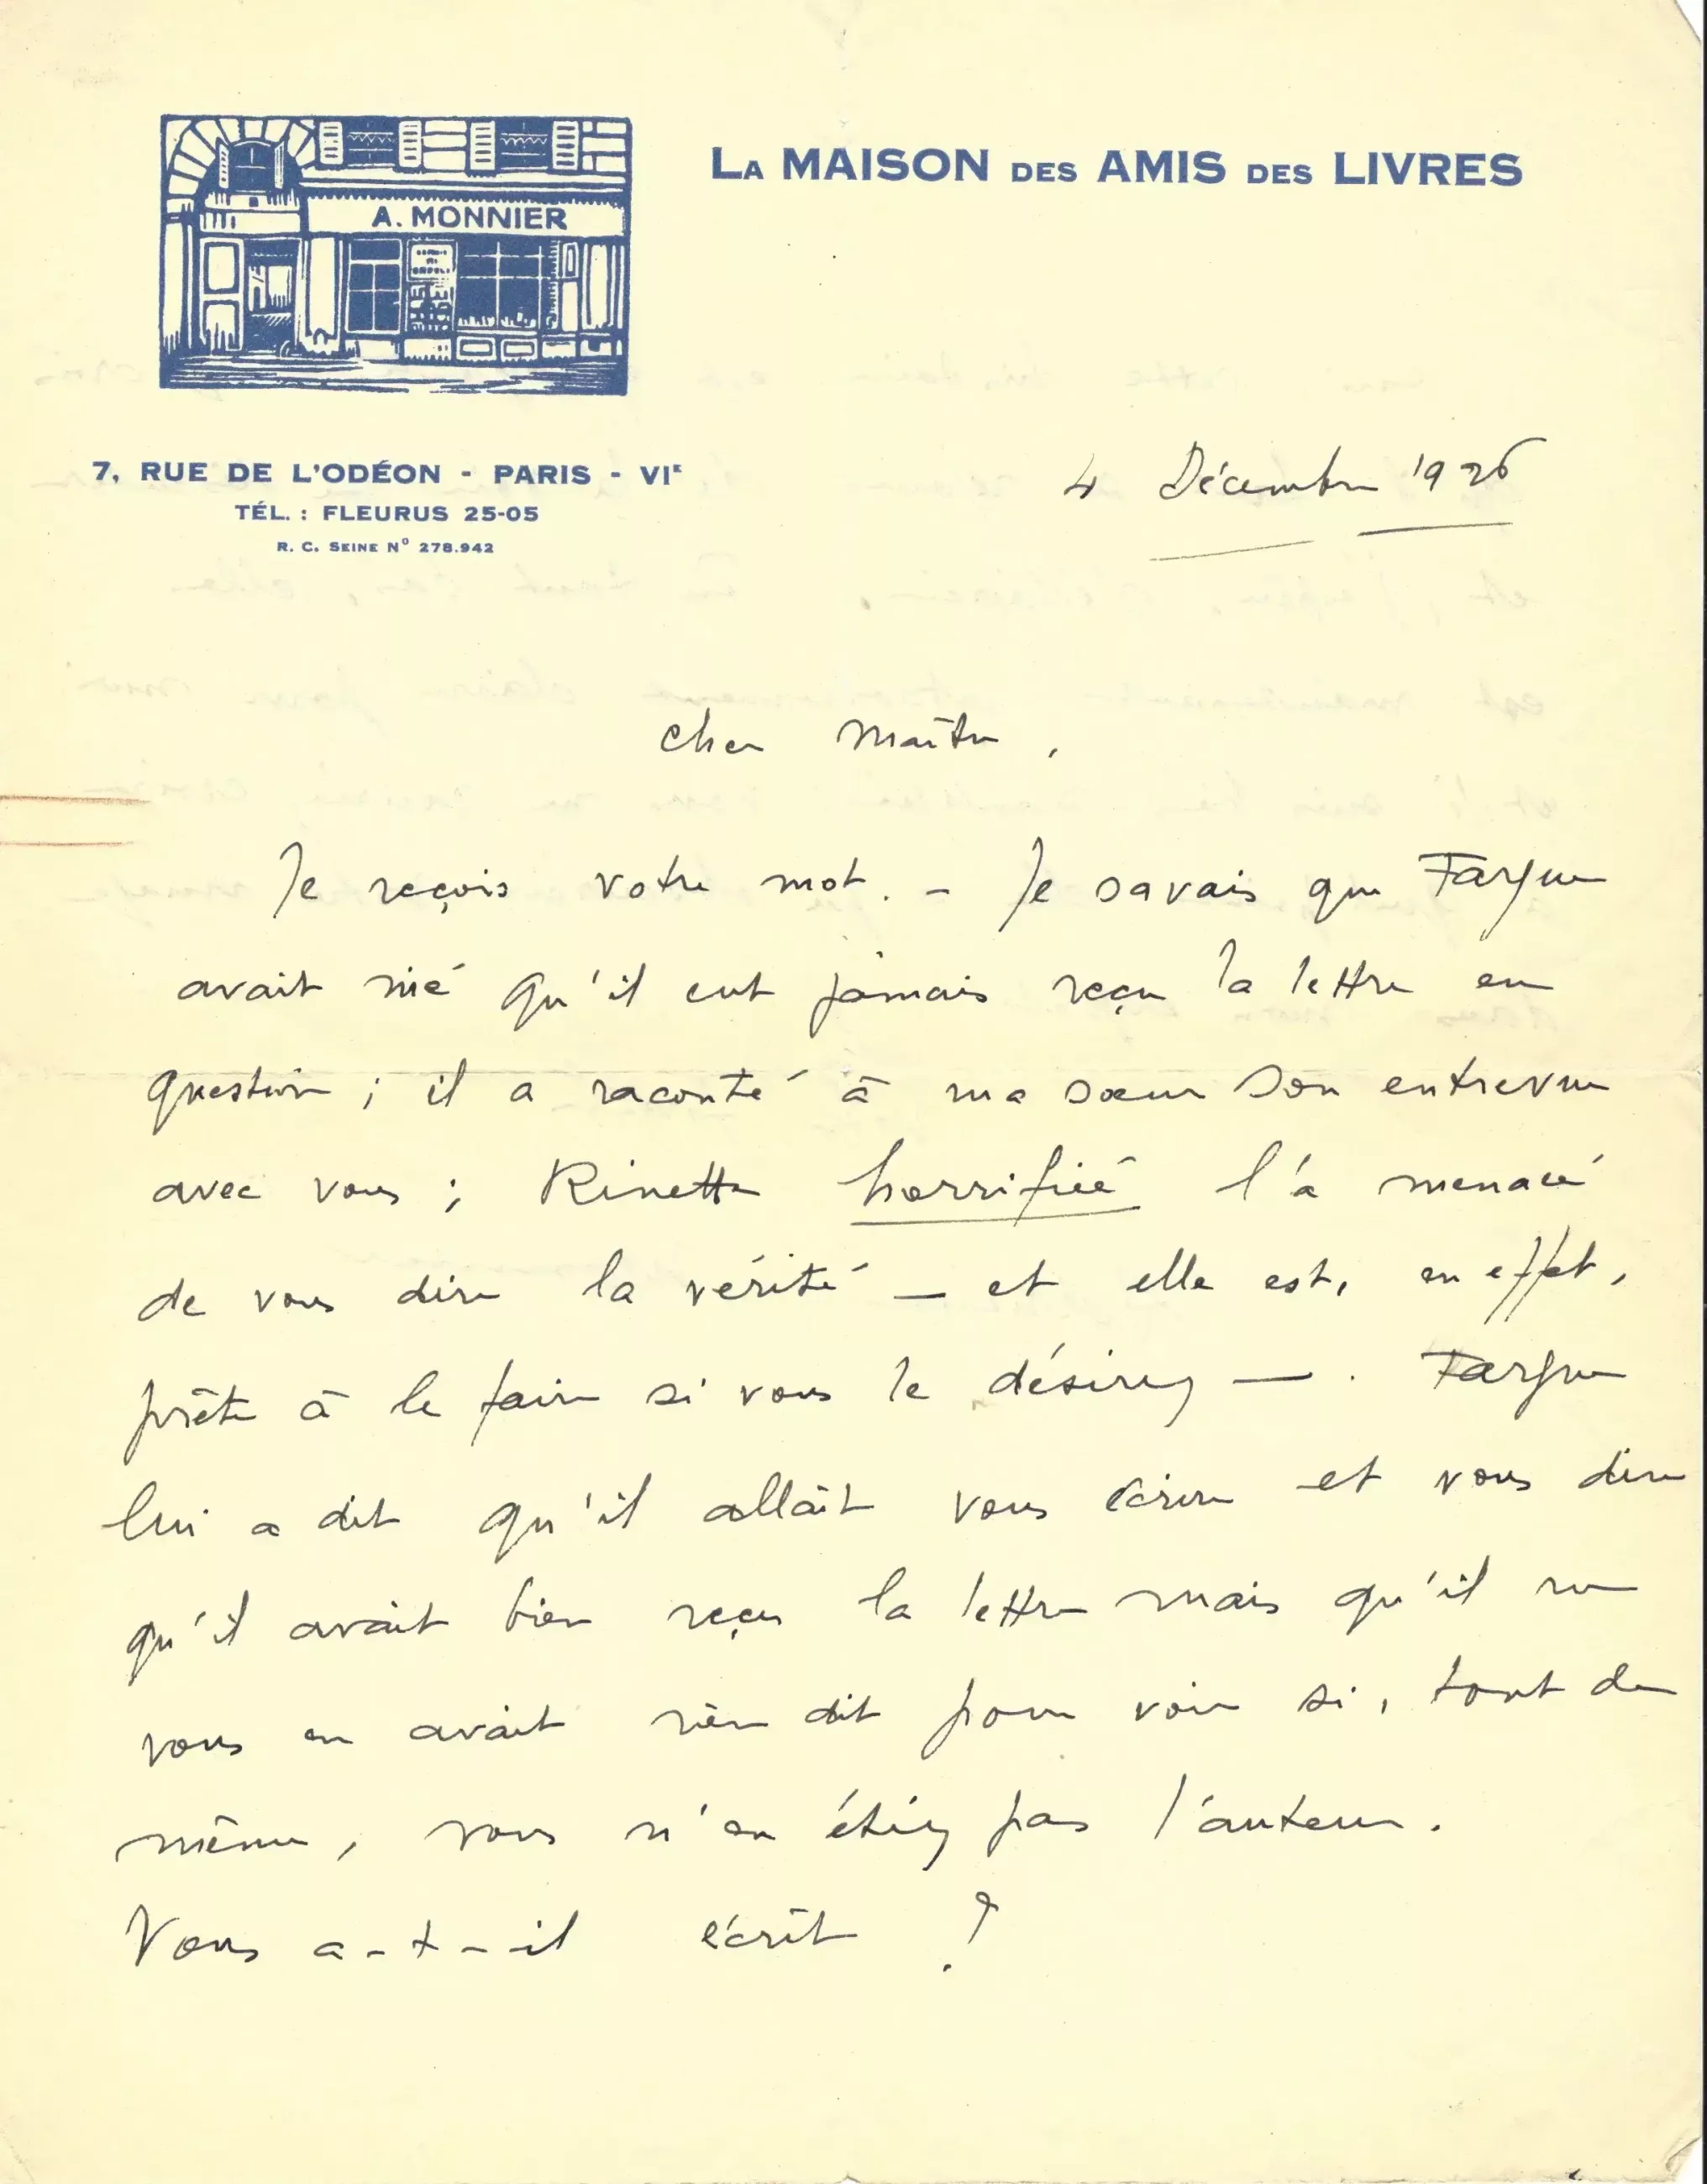 LA MAISON DES AMIS DES LIVRES
A. MONNIER
7, RUE DE L'ODÉON - PARIS - VIE
TÉL. : FLEURUS 25-05
R. C. SEINE N° 278.942
4 Décembre 1926
Cher Maître,
Je reçois votre mot. – Je savais que Fargue
avait nié qu'il eut jamais reçu la lettre en
question ; il a raconté à ma sœur son entrevue
avec vous ; Rinette horrifiée l'a menacé
de vous dire la vérité — et elle est, en effet,
prête à le faire si vous le désirez — . Fargue
lui a dit qu'il allait vous écrire et vous dire
qu'il avait bien reçu la lettre mais qu'il ne
vous en avait rien dit pour voir si, tout de
même, vous n'en étiez pas l'auteur.
Vous a-t-il écrit ?